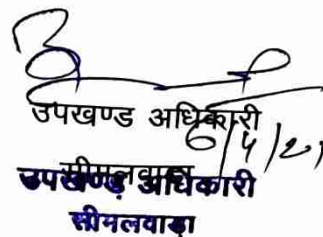 उपखण्ड अधिकारी
6/4/21
सीमलवाडा
उपखण्ड अधिकारी
सीमलवाडा